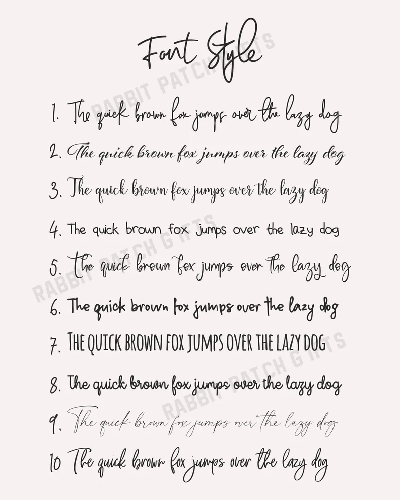 Font Style
1. The quick brown fox jumps over the lazy dog
2. The quick brown fox jumps over the lazy dog
3. The quick brown fox jumps over the lazy dog
4. The quick brown fox jumps over the lazy dog
5. The quick brown fox jumps over the lazy dog
6. The quick brown fox jumps over the lazy dog
7. THE QUICK BROWN FOX JUMPS OVER THE LAZY DOG
8. The quick brown fox jumps over the lazy dog
9. The quick brown fox jumps over the lazy dog
10 The quick brown fox jumps over the lazy dog
RABBIT PATCH GIFTS
RABBIT PATCH GIFTS
RABBIT PATCH GIFTS